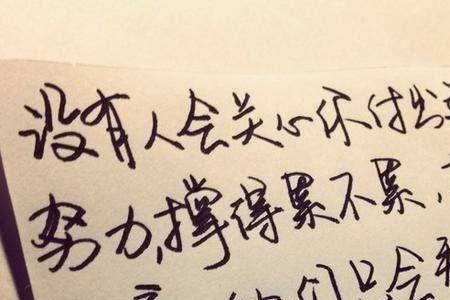 没有人会关心你付出
努力,撑得累不累,
们只会